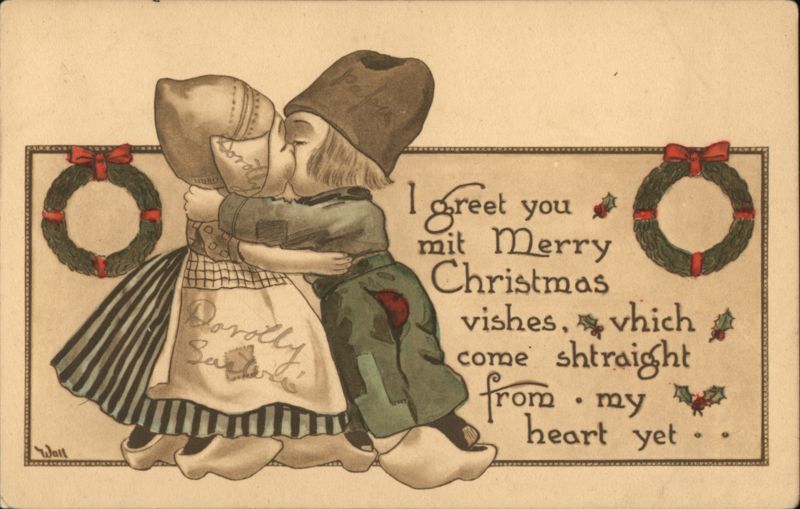 I greet you
mit Merry
Christmas
vishes, vhich
come shtraight
from • my
heart yet • •
Dorothy
Dorothy
Wall